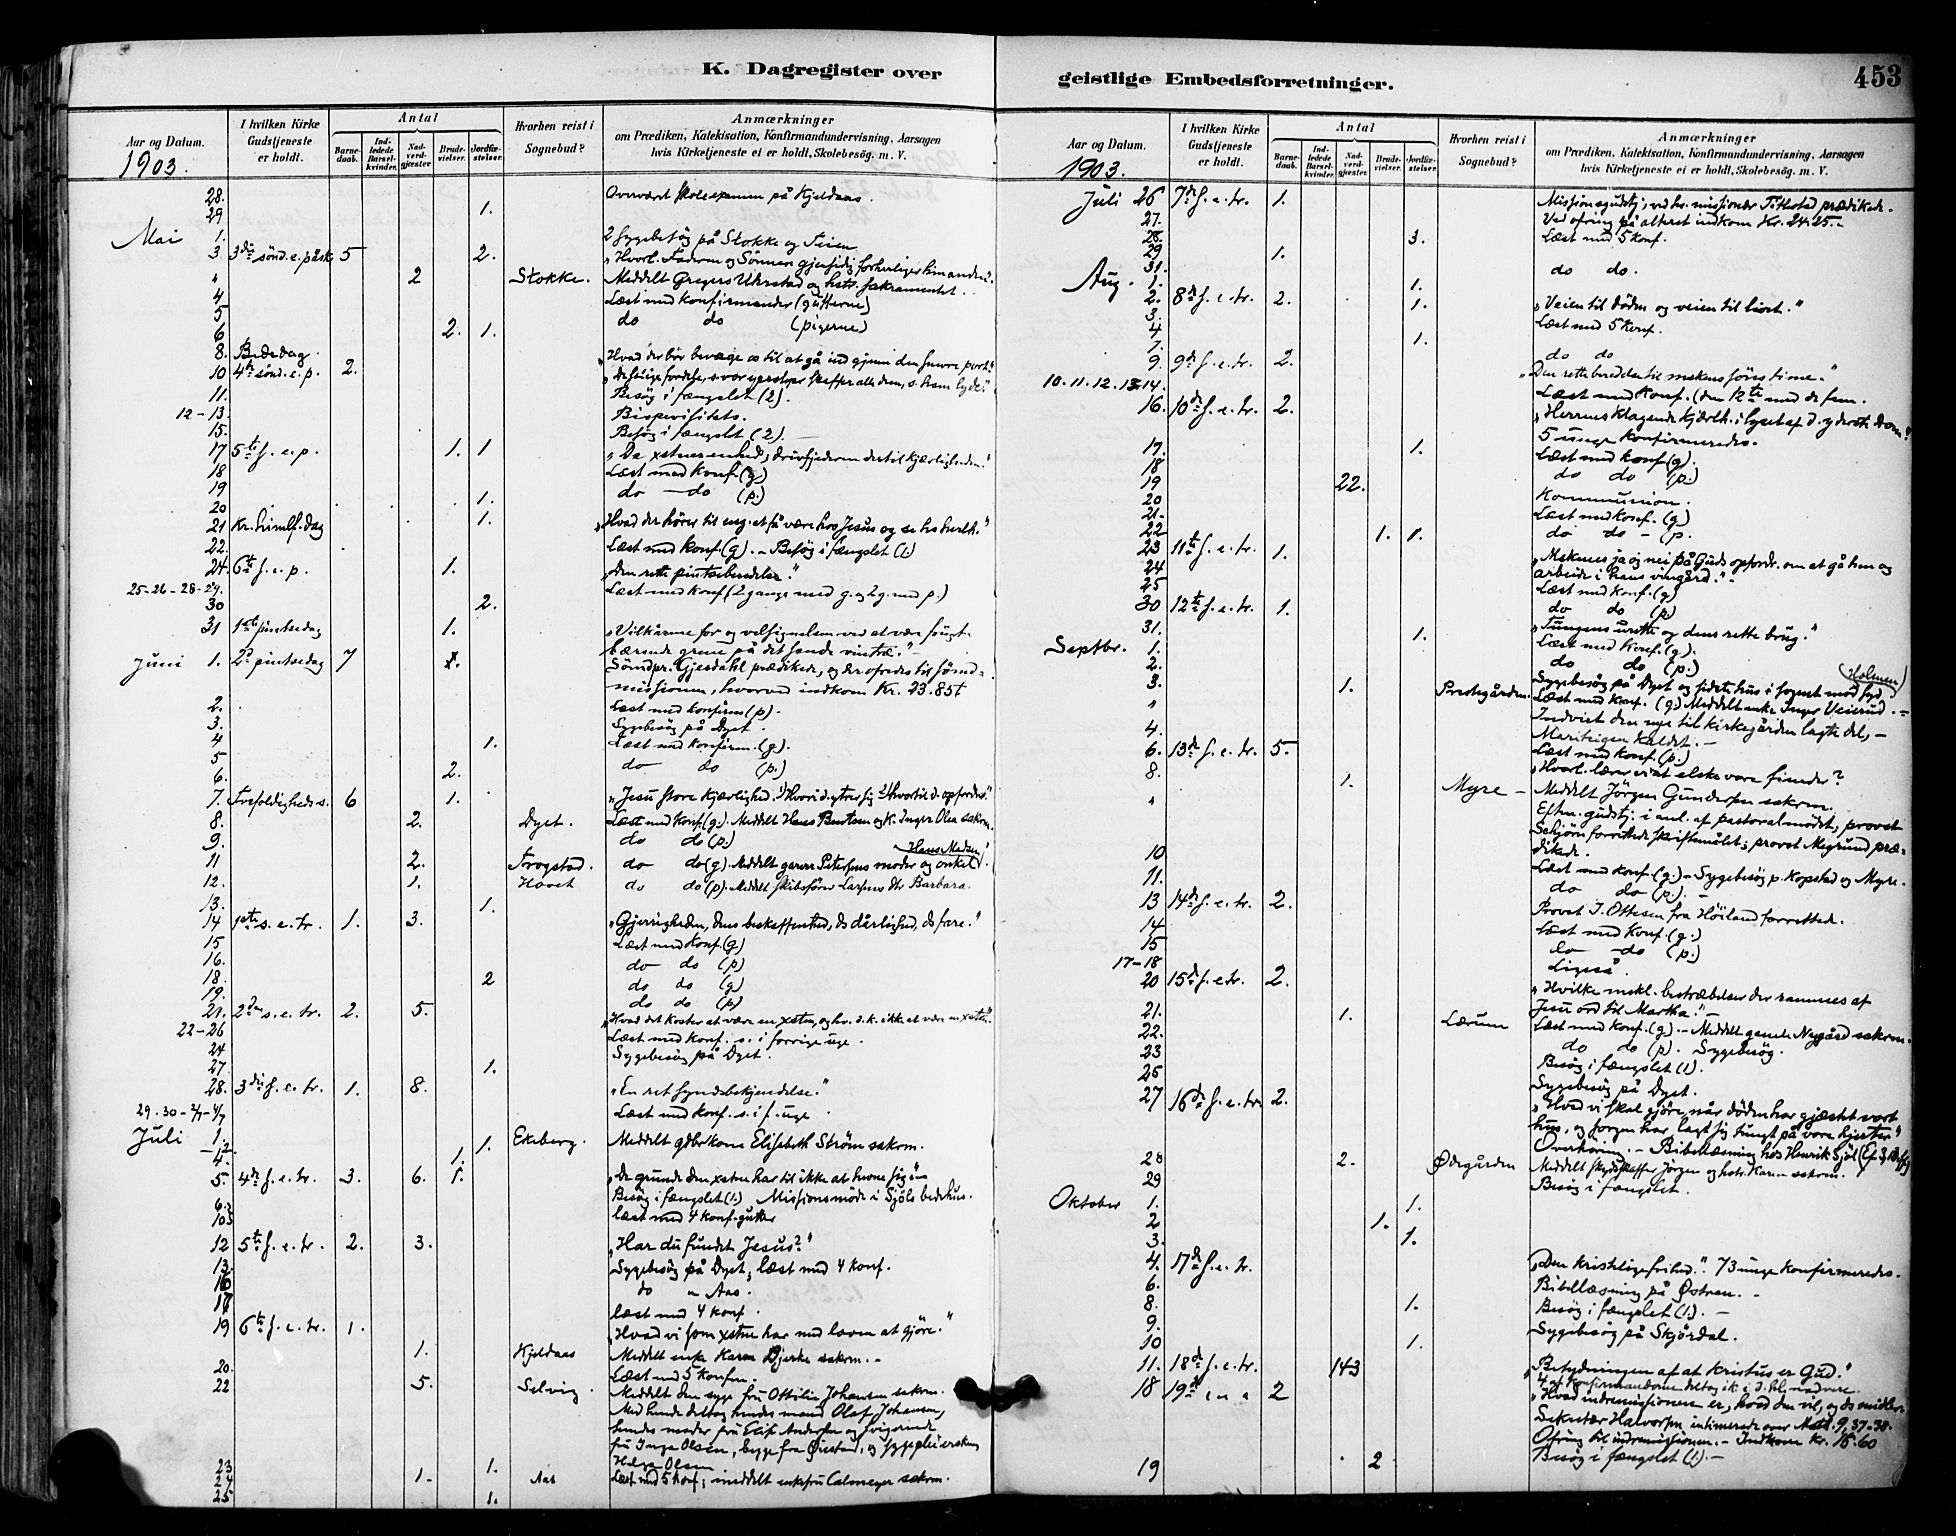 K. Dagregister over
Aar og Datum.
I hvilken Kirke Gudstjeneste er holdt.
Antal
Barnedaab.
Indledede Barselkvinder.
Nadverdgjæster
Brudevielser.
Jordfæstelser.
Hvorhen reist i Sognebud?
Anmærkninger
om Prædiken, Katekisation, Konfirmandundervisning, Aarsagen
hvis Kirketjeneste ei er holdt, Skolebesög, m. V.
1903.
28. Overværet Skoleexamen på Kjeldaas.
29 1.
Mai 1. 2 sygebesög på Stokke og Teien
3. 3die sönd. e. påske 5 2. „Hvorl. Faderen og Sönnen
" 2 Stokke. Meddelt Gregers og sakramentet.
4 Læst med konfirmander (gutterne)
5 do do (pigerne)
6 2. 1.
8. Bededag. „Hvad der bör bevæge os til at gå ind gjennem den port."
10 4de sönd. e. p. 2.
11. Besög i fængslet (2).
12-13. Bispevisitats.
15. Besög i fængslet (2).
17 5te s. e. p. 1. 1
18 Læst med konf. (g)
19 do do (p.)
20 1.
21 Kr. himlf. dag 1. „Hvad der hörer til at få være hos Jesus og se hs herlh."
22. Læst med konf. (g). - Besög i fængslet (1)
24. 6te s. e. p. 1. „Den rette pintseberedelse."
25-26-28-29. Læst med konf (2 gange med g. og 2 g. med p.)
30 2.
31 1ste pintsedag 1. „Vilkårene for og velsignelsen ved at være
bærende grene på det sande vintræ."
Juni 1. 2d pintsedag 7 1. Gjesdahl prædikede, og der ofredes til
missionen, hvorved indkom Kr. 23.85
2. Læst med konfirm (p).
3. Sygebesög på Dyet.
4 1. Læst med konfirm. (g).
5 do do (p.)
6. 2.
7. Trefoldigheds s. 6 1. „Jesu store kjærlighed.
8. 2. Dyet. Læst med konf. (g.). Meddelt Hans og K. Inger Olea sakrm.
9. do do (p)
Hans Madsen
11 2. Trogstad. do do (g). Meddelt Petersens moder og onkel
12. 1. Hovet do do (p). Meddelt Larsens Barbara.
13. 1.
14 1ste s. e. tr. 1. 3. „Gjerrigheden, dens beskaffenhed, ds dårlighed, ds fare."
15 Læst med konf. (g)
16. do do (p)
18. 2 do do (g)
19. do do (p)
21. 2den s. e. tr. 2. 5. „Hvad det koster at være en xsten, og hv. d. k. ikke at være en xsten".
22-26 Læst med konf. s. i forrige uge.
24 Sygebesög på Dyet.
27. 1.
28. 3die s. e. tr. 1. 8. „En ret syndsbekjendelse."
29.30-2/7-4/7 Læst med konf. s. i f. uge.
Juli 1. 1. Ekeberg. Meddelt gdbrkone Elisabeth Ström sakrm.
4. 1.
5. 4de s. e. tr. 3. 6. 1. „De grunde den xstne har til ikke at hevne sig"
6. Besög i fængslet (1.) Missionsmöde i Sjöls bedehus.
10 læst med 4 konf. gutter
12 5te s. e. tr. 2. 3. „Har du fundet Jesus?"
13. Sygebesög på Dyet; læst med 4 konf.
16 do " Aas.
17 læst med 4 konf.
19 6te s. e. tr. 1. „Hvad vi som xstne har med loven at gjöre."
1. Kjeldaas Meddelt enke Karen Bjerke sakrm.
20. Læst med 5 konfm.
22 5. Selvig. Meddelt den syge fru Ottilie Johansen sakrm.
Med hende deltog hendes mand Olaf Johansen,
hendes moder fru Elise Andersen og svigerinde
fru Inga Olsen, begge fra og sygepleiersken
23 1. Helga Olsen
24 1. Aas Læst med 5 konf; meddelt enkefru Calmeyer sakrm.
25 1.
geistlige Embedsforretninger.
453
Aar og Datum.
I hvilken Kirke Gudstjeneste er holdt.
Antal
Barnedaab.
Indledede Barselkvinder.
Nadverdgjæster.
Brudevielser.
Jordfæstelser.
Hvorhen reist i Sognebud?
Anmærkninger
om Prædiken, Katekisation, Konfirmandundervisning, Aarsagen
hvis Kirketjeneste ei er holdt, Skolebesög, m. V.
1903.
Juli 26 7de s. e. tr. 1. Missionsgudstj., ved hv. missionær Titlestad prædikede.
27. Ved ofring på alteret indkom Kr. 24.25.-
28. 3. Læst med 5 konf.
29 1.
31. do do.
Aug. 1. 1.
2. 8de s. e. tr. 2. 1. „Veien til döden og veien til livet."
3. Læst med 5 konf.
4 1.
7. do do
9 9de s. e. tr. 2. „Den rette beredelse til mskens söns time."
10.11.12.13.14. Læst med konf. (den 12te med de fem.
16. 10de s. e. tr. 2. „Herrens klagende kjærlh. i lyset af d. yderste dom"
5 unge konfirmeredes.
17. 1. Læst med konf (g).
18 do do (p.)
19 22. Kommunion.
20 Læst med konf. (g)
21. do do - (p.
22 1. 1.
23 11te s. e. tr. 1. „Mskenes ja og nei på Guds opfordr. om at gå hen og
24 arbeide i hans vingård."
25 Læst med konf. (g)
30 12te s. e. tr. 1. do do (p)
31. 1. „Tungens urette og dens rette brug."
Septbr. 1. Læst med konf. (g).
2. do do (p.)
Holmen
3. 1. Prestegården. Sygebesög på Dyet og
" Læst med konf. (g.) Meddelt enke Inger Veierud.
4. Indviet den nye til kirkegården lagte del,
6. 13de s. e. tr. 5. Læst med konf. (p.)
8. 1. Myre - „Hvorl. lærer vi at elske vore fiender?
" Meddelt Jörgen Gundersen sakrm.
Eftm. gudstj. i anl. af pastoralmödet; provst
Schjörn forrettede skriftemålet; provst Megrund præ-
dikede.
10 Læst med konf. (g.) - Sygebesög p. Kopstad og Myre.
11. do do (p.)
13 14de s. e. tr. 2. Provst J. Ottesen fra Höiland forrettede.
14 Læst med konf. (g.)
15 do do (p.)
17-18 Ligeså.
20 15de s. e. tr. 2. „Hvilke mskl. bestræbelser der rammes af
Jesu ord til Martha."
21. 1. Lærum Læst med konf. (g). - Meddelt gamle Nygård sakrm.
22. do do (p). Sygebesög.
23 Besög i fængslet (1).
25 Sygebesög på Dyet.
27 16de s. e. tr. 2. „Hvad vi skal gjöre, når döden har gjæstet vort
hus, og sorgen har lagt sig tungt på vore hjerter"
Overhöring. - Bibellæsning hos Henrik Sjöl
28 2. Ødegården Meddelt skydsskaffer Jörgen og hstr. Karen sakrm.
29 Besög i fængslet.
Oktober 1. 1.
2 1.
3. 1.
4. 17de s. e. tr. „Den kristelige frihed.". 73 unge konfirmeredes.
6. Bibellæsning på Østren.
8. 1. Besög i fængslet (1).
9. Sygebesög på Skjördal.
10 1.
11. 18de s. e. tr. 143 „Betydningen af at Kristus er Gud."
af konfirmanderne deltog ik. i d. hl. nadvere.
18 19de " " " 2 „Hvad indremissionen er, hvad den vil, og ds midler.
Sekretær Halvorsen intimerede over Mat. 9,37-38.
Ofring til indremissionen. - Indkom Kr. 15.60
19 2 Besög i fængslet (1).